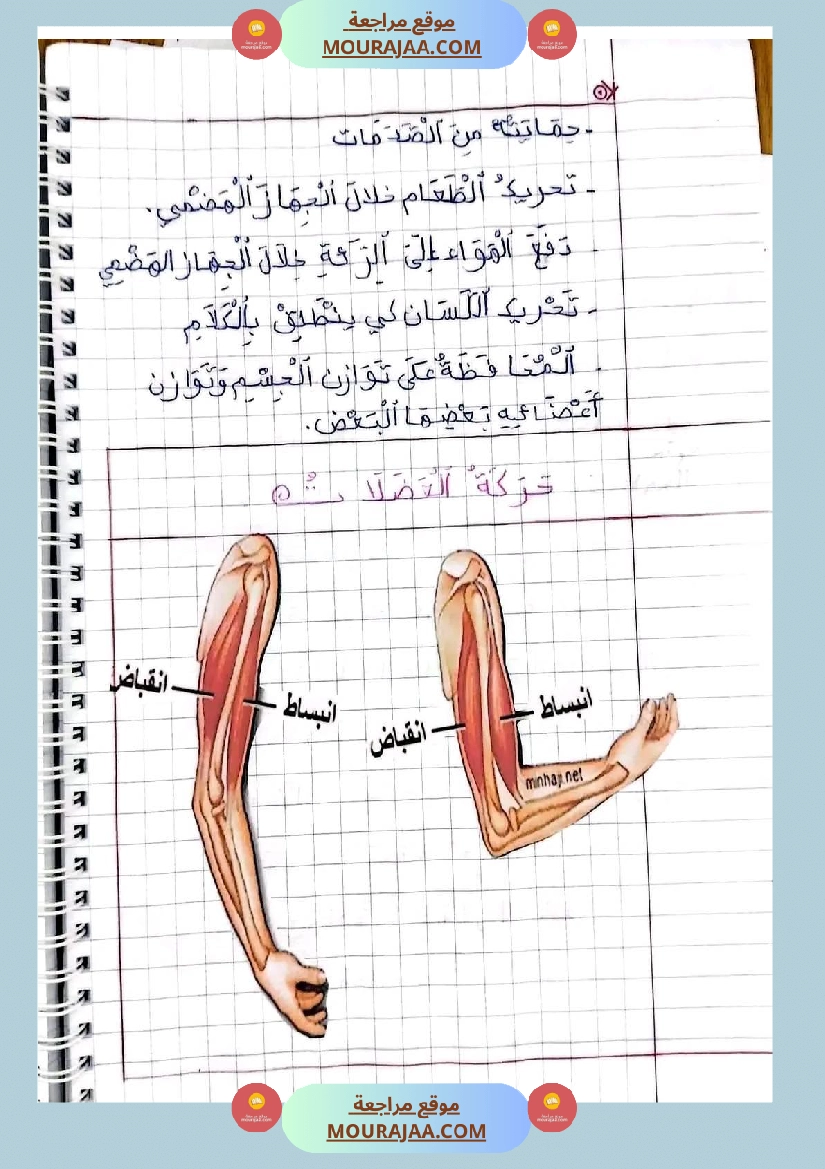 موقع مراجعة
MOURAJAA.COM
- حِمَايَتُهُ مِنَ ٱلْصَّدَمَات
- تَحريكُ ٱلْطَّعَام خلالَ ٱلْجِهَازَ ٱلْهَضْمي.
- دَفْعُ ٱلْهَوَاء إِلَىَ ٱلِرّئَةِ خِلَالَ ٱلْجِهَاز الهَضْمِي
- تَحْريك ٱللّسَان لكي ينْطَلِقْ بِٱلْكَلَامِ
- ٱلْمُحَافَظَةُ عَلَىَ تَوَازن ٱلْجِسْمِ وَتَوَازن
أَعْضَائِهِ بَعْضِهَا ٱلْبَعْض.
حَرَكَةُ ٱلْعَضَلَات
انقباض
انبساط
انبساط
انقباض
minhaji.net
موقع مراجعة
MOURAJAA.COM